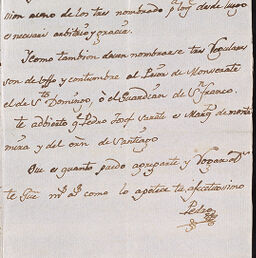 cion a uno de los tres nombrado p.r ley desde luego
es necesario arbitrio y gracia.
Y como tambien devan nombrarse tres Seglares
son de estilo y costumbre al Prior de Monserrate
el de S.to Domingo, ò el Guardian de S.n Franco.
te advierto q.e Pedro Josef Zarate es Marq.s de monte
mira y del orñ de Santiago
Que es quanto puedo
te Gue m.s a.s como lo apetece tu afectisimo
Pedro